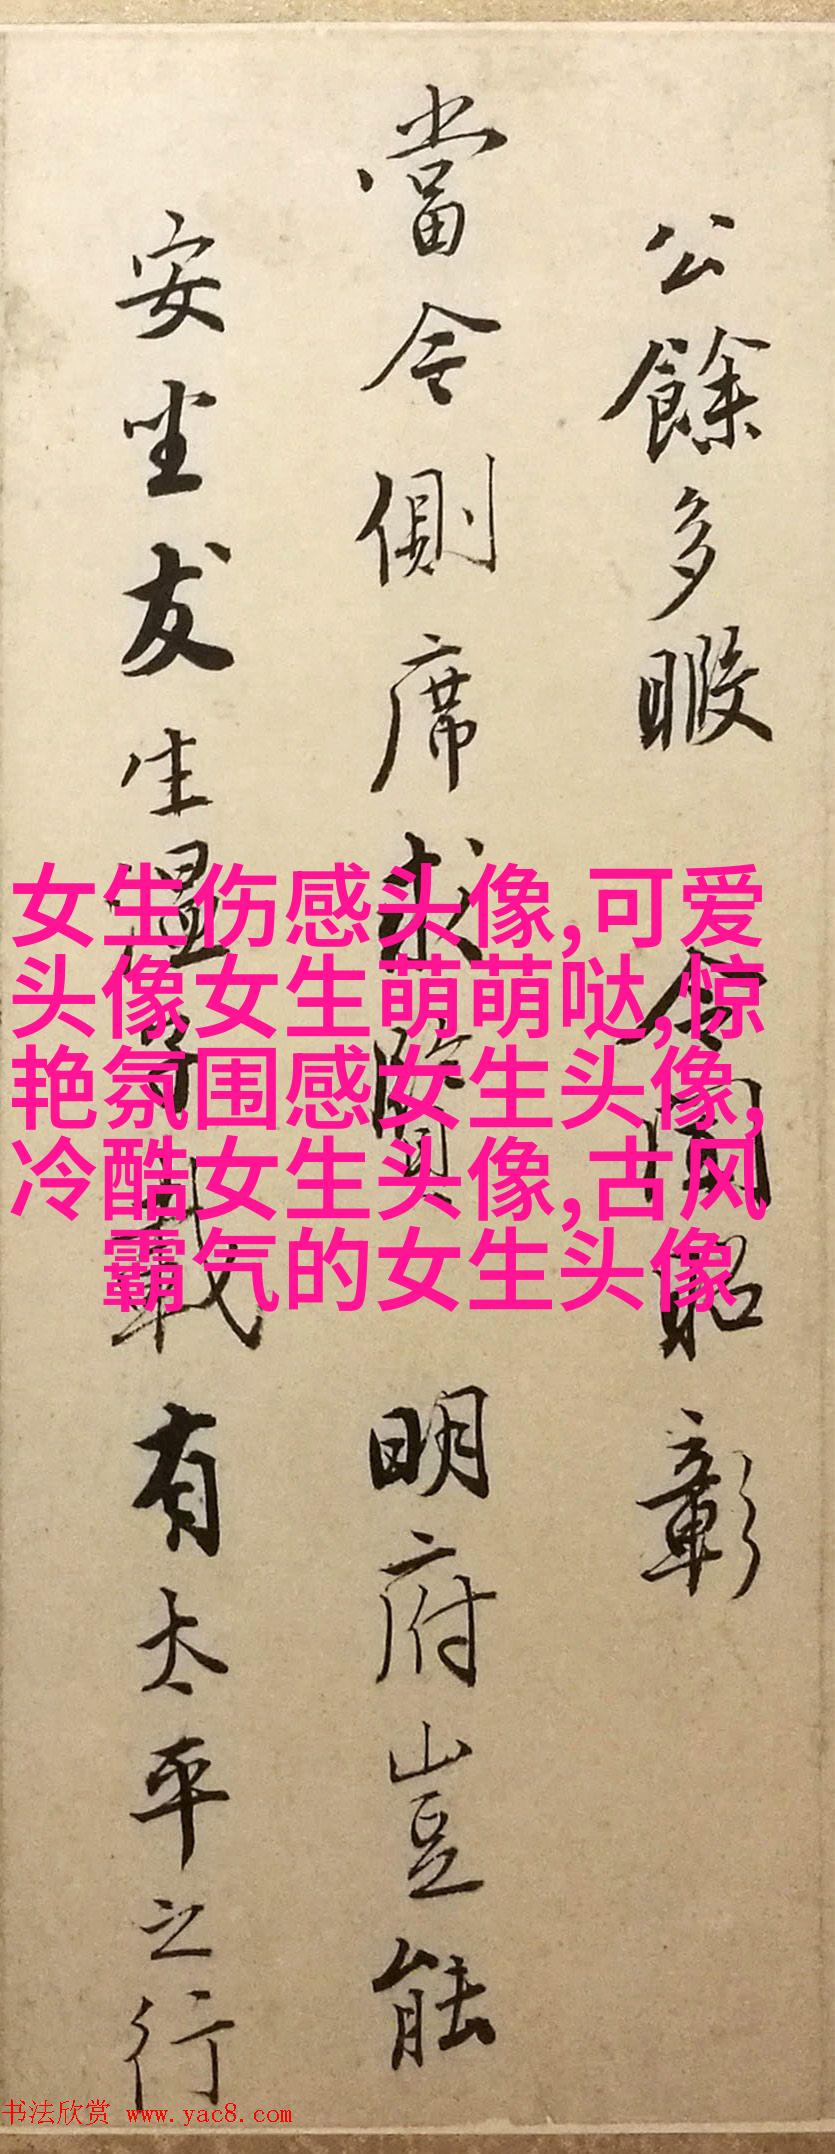 公餘多暇 令聞昭彰
當今側席求賢 明府豈能
安坐友生溫尋載有太平之行
女生伤感头像,可爱
头像女生萌萌哒,惊
艳氛围感女生头像,
冷酷女生头像,古风
霸气的女生头像
书法欣赏 www.yac8.com